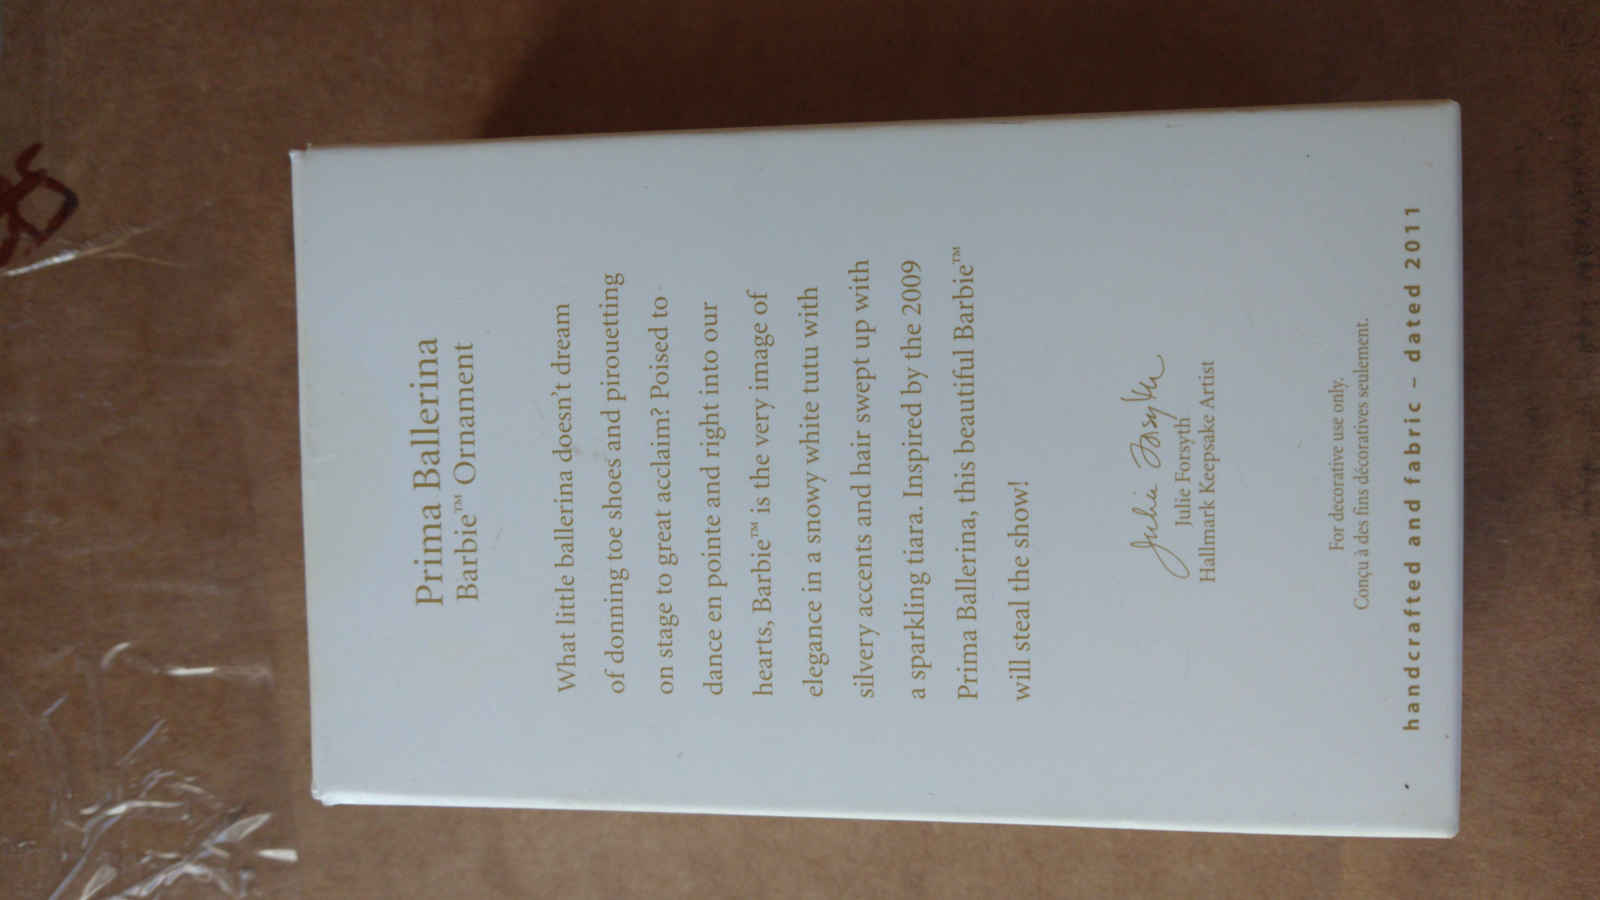 Prima Ballerina
Barbie™ Ornament
What little ballerina doesn't dream
of donning toe shoes and pirouetting
on stage to great acclaim? Poised to
dance en pointe and right into our
hearts, Barbie™ is the very image of
elegance in a snowy white tutu with
silvery accents and hair swept up with
a sparkling tiara. Inspired by the 2009
Prima Ballerina, this beautiful Barbie™
will steal the show!
Julie Forsyth
Julie Forsyth
Hallmark Keepsake Artist
For decorative use only.
Conçu à des fins décoratives seulement.
handcrafted and fabric – dated 2011